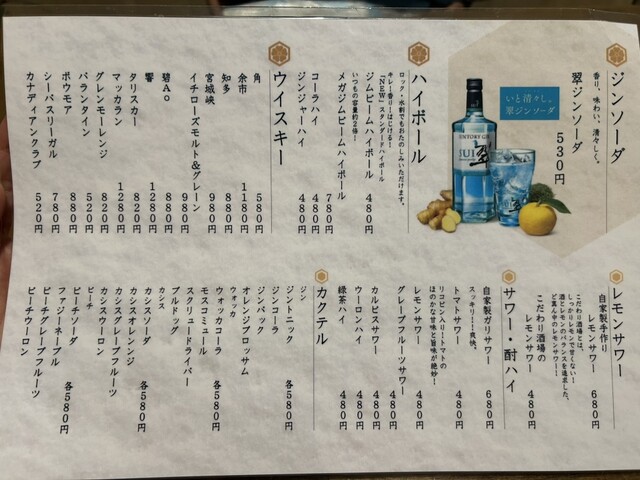 ジンソーダ
香り、味わい、清々しく。
翠ジンソーダ 530円
いと清々し。
翠ジンソーダ
SUNTORY GIN
翠
ハイボール
ロック・水割でもおたのしみいただけます。
キレ香り！はじける！
「NEW」スタンダードハイボール
ジムビームハイボール 480円
いつもの容量約2倍！
メガジムビームハイボール 780円
コーラハイ 480円
ジンジャーハイ 480円
ウイスキー
角 580円
余市 1180円
知多 880円
宮城峡 980円
イチローズモルト&グレーン 980円
碧Ao 880円
響 1280円
タリスカー 820円
マッカラン 1280円
グレンモーレンジ 820円
バランタイン 520円
ボウモア 880円
シーバスリーガル 780円
カナディアンクラブ 520円
レモンサワー
自家製手作り
レモンサワー 680円
こだわり酒場とは、
しっかりレモンで甘くない！
酒とレモンのバランスを追求した、
ど真ん中のレモンサワー！
こだわり酒場の
レモンサワー 480円
サワー・酎ハイ
自家製ガリサワー 680円
スッキリ！！爽快。
トマトサワー 480円
リコピン入り！トマトの
ほのかな甘味と旨味が絶妙！
レモンサワー 480円
グレープフルーツサワー 480円
カルピスサワー 480円
ウーロンハイ 480円
緑茶ハイ 480円
カクテル
ジン
ジントニック 各580円
ジンコーラ
ジンバック
オレンジブロッサム
ウォッカ
ウォッカコーラ 各580円
モスコミュール
スクリュードライバー
ブルドッグ
カシス
カシスソーダ 各580円
カシスオレンジ
カシスグレープフルーツ
カシスウーロン
ピーチ
ピーチソーダ 各580円
ファジーネーブル
ピーチグレープフルーツ
ピーチウーロン